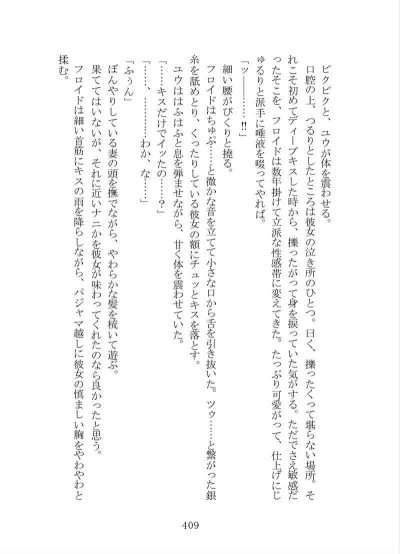 ビクビクと、ユウが体を震わせる。
口腔の上、つるりとしたところは彼女の泣き所のひとつ。曰く、擽ったくって堪らない場所。そ
れこそ初めてディープキスした時から、擽ったがって身を捩っていた気がする。ただでさえ敏感だ
ったそこを、フロイドは数年掛けて立派な性感帯に変えてきた。たっぷり可愛がって、仕上げにじ
ゅるりと派手に唾液を啜ってやれば。
「ッ―――……‼」
細い腰がびくりと撓る。
フロイドはちゅぷ……と微かな音を立てて小さな口から舌を引き抜いた。ツゥ……と繋がった銀
糸を舐めとり、くったりしている彼女の額にチュッとキスを落とす。
ユウははふはふと息を弾ませながら、甘く体を震わせていた。
「……キスだけでイッたの……？」
「……、………わか、な……」
「ふぅん」
ぼんやりしている妻の頭を撫でながら、やわらかな髪を梳いて遊ぶ。
果ててはいないが、それに近いナニかを彼女が味わってくれたのなら良かったと思う。
フロイドは細い首筋にキスの雨を降らしながら、パジャマ越しに彼女の慎ましい胸をやわやわと
揉む。
409